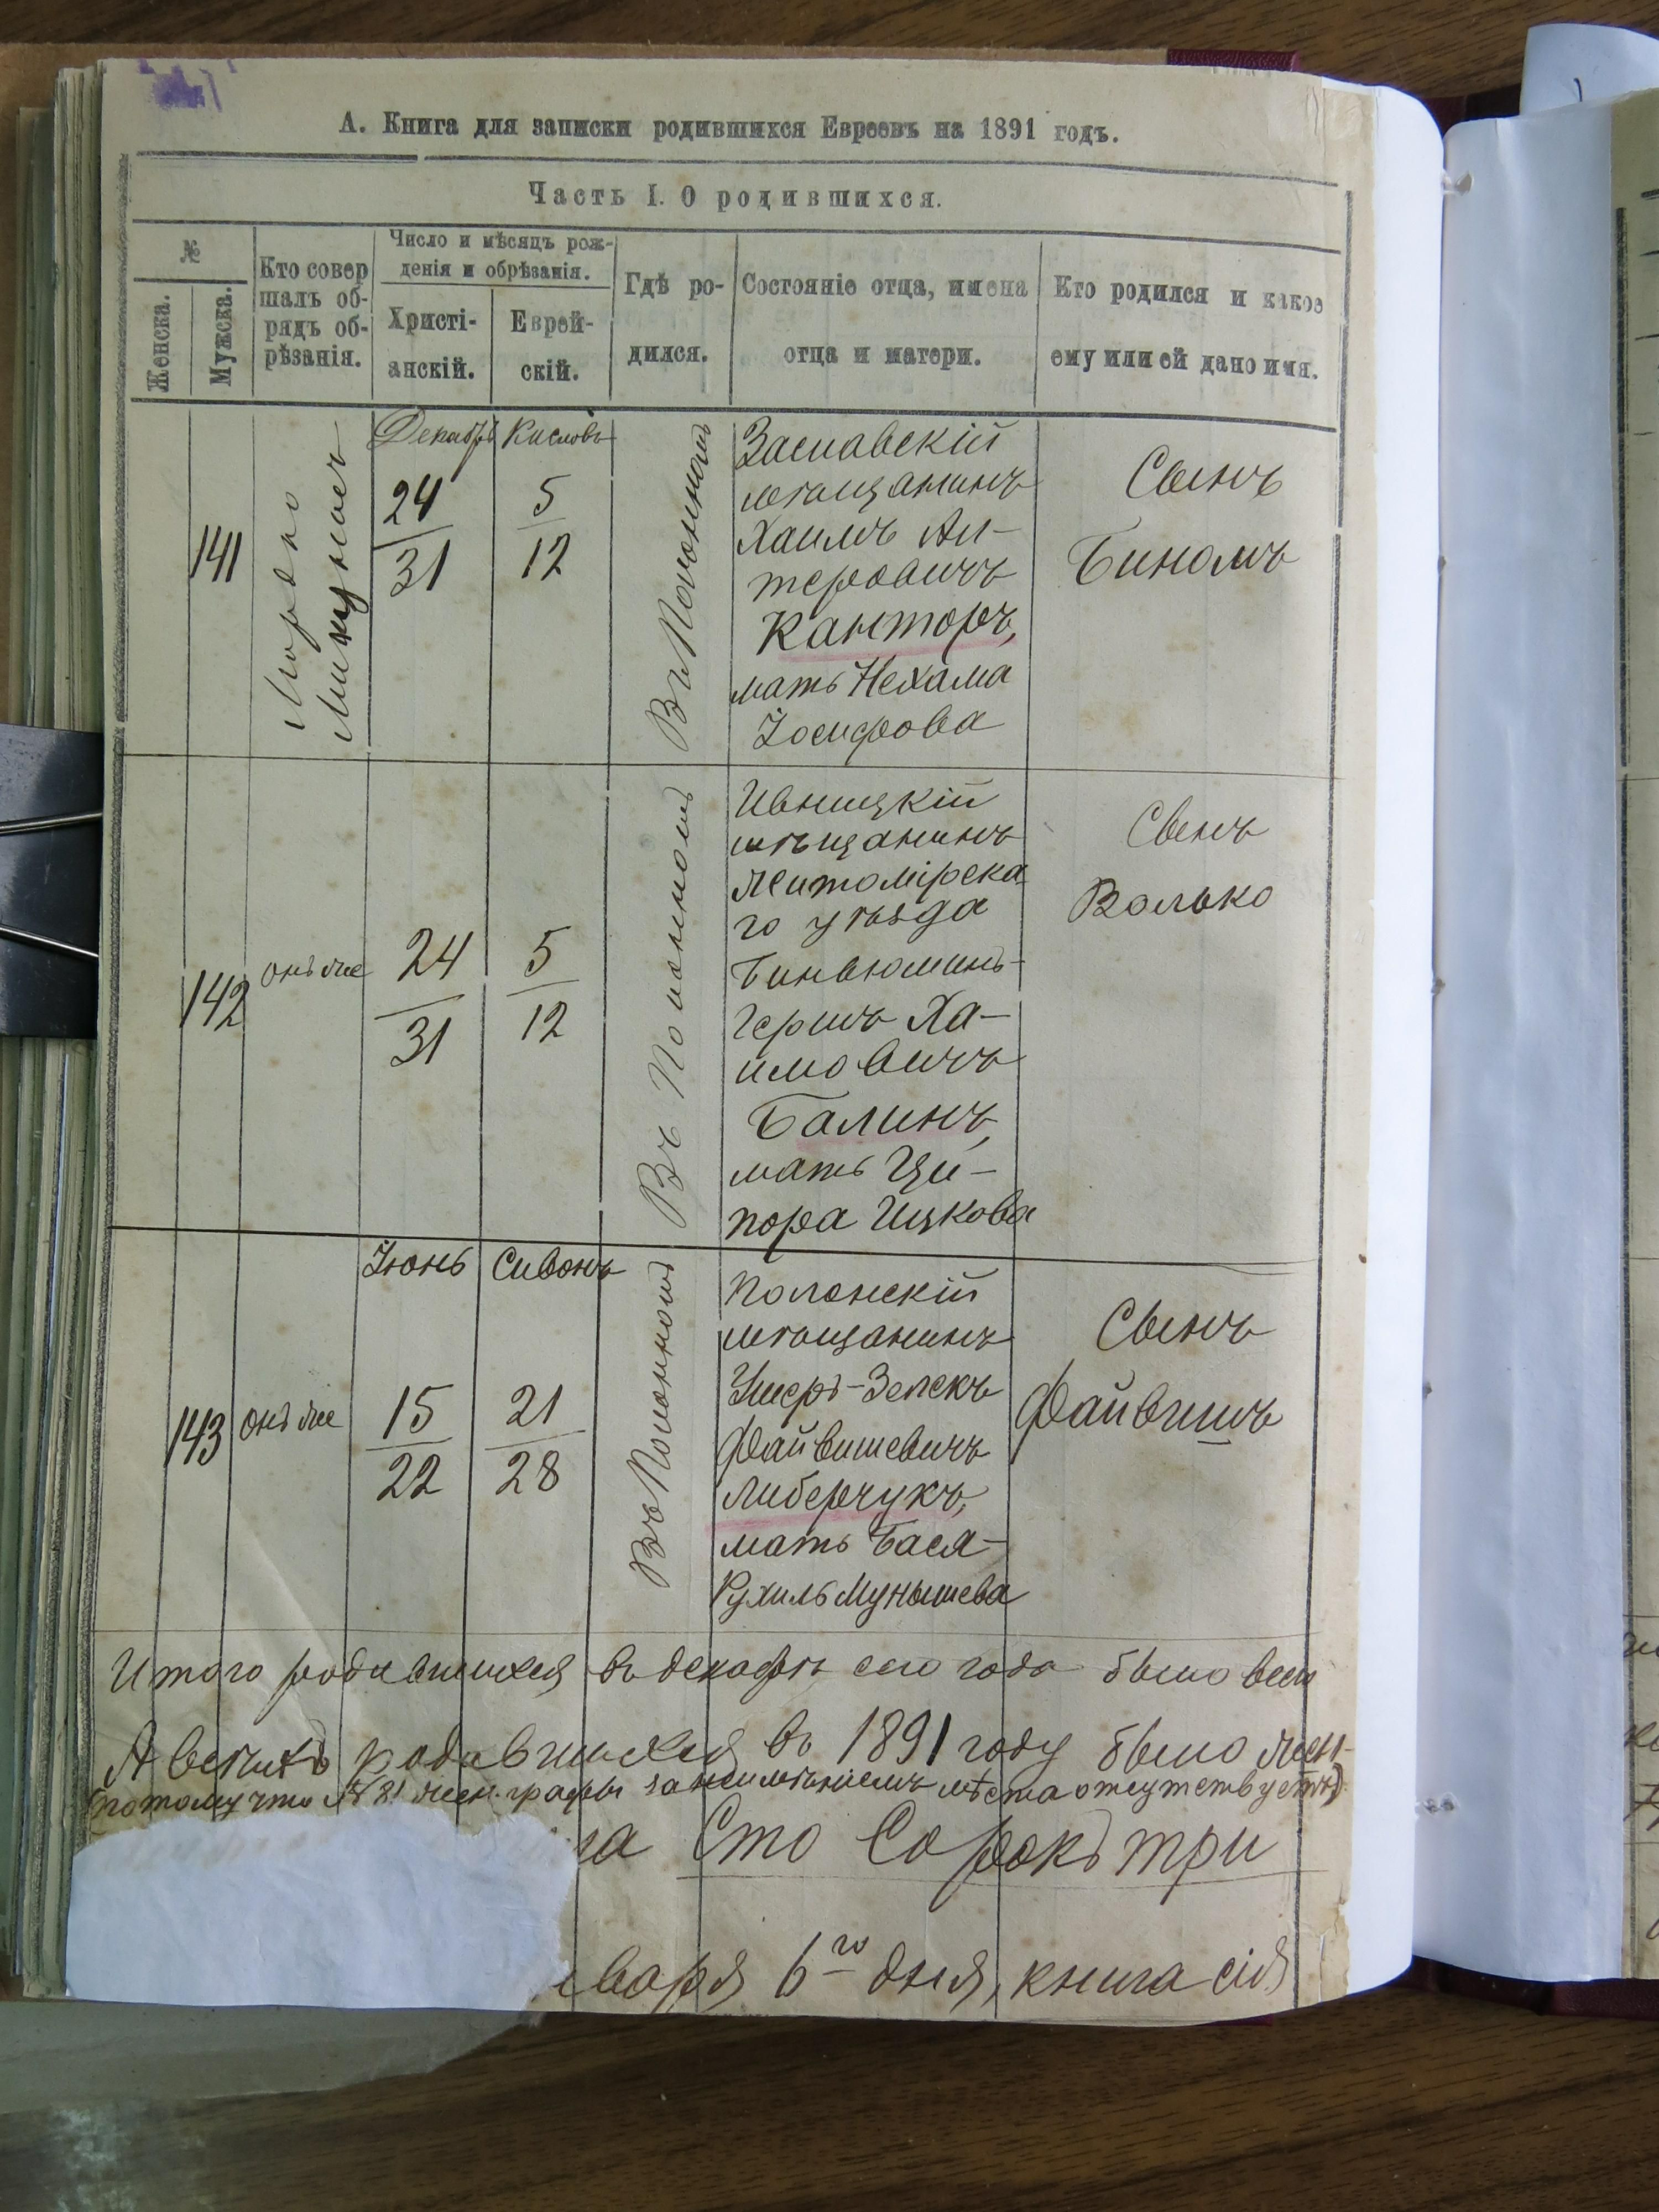 А. Книга для записки родившихся Евреевъ на 1891 годъ.
Часть I. О родившихся.
№
Женска.
Мужска.
Кто совер
шалъ об-
рядъ об-
рѣзанія.
Число и мѣсяцъ рож-
денія и обрѣзанія.
Христі-
анскій.
Еврей-
скій.
Гдѣ ро-
дился.
Состояніе отца, имена
отца и матери.
Кто родился и какое
ему или ей дано имя.
141
Мордко
Декабрь
24
31
Кислевъ
5
12
Въ Полонномъ
Заславскій
мѣщанинъ
Хаимъ Ал-
теровичъ
Канторъ,
мать Нехама
Іосифова
Сынъ
Биномъ
142
онъ же
24
31
5
12
Въ Полонномъ
Ивницкій
мѣщанинъ
Житомірска
го уѣзда
Биньюминъ-
Гершъ Ха-
имовичъ
Балинъ,
мать Ци-
пора Ицкова
Сынъ
Волько
143
онъ же
Іюнь
15
22
Сивонъ
21
28
Въ Полонномъ
Полонскій
мѣщанинъ
Ушеръ-Зелекъ
Файвишевичъ
Либерчукъ,
мать Бася-
Рухиль Мунышева
Сынъ
Файвишъ
Итого родившихся въ декабрѣ сего года было всего
А всѣхъ родившихся въ 1891 году было жен-
(потому что № 81 жен. графы за неимѣніемъ мѣста отсутствуетъ)
ла Сто Сорокъ три
варя 6го дня, книга сія